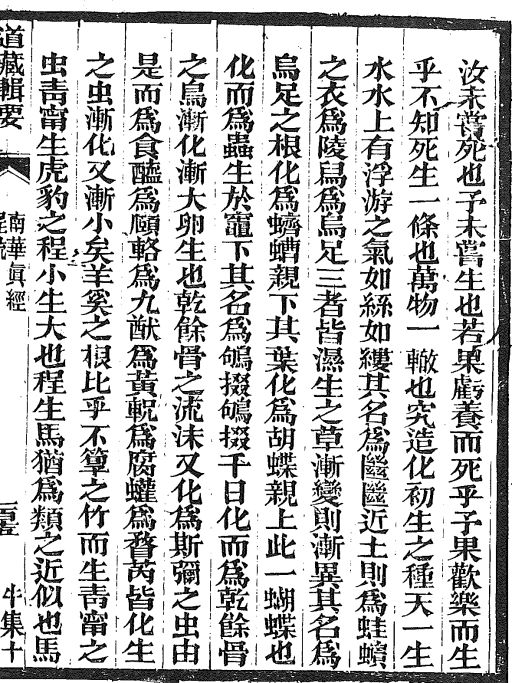 汝未嘗死也予未嘗生也若果虧養而死乎予果歡樂而生
乎不知死生一條也萬物一轍也究造化初生之種天一生
水水上有浮游之氣如絲如縷其名爲㡭㡭近土則爲蛙蠙
之衣爲陵舄爲烏足三者皆濕生之草漸變則漸異其名爲
烏足之根化爲蠐螬親下其葉化爲胡蝶親上此一蝴蝶也
化而爲蟲生於竈下其名爲鴝掇鴝掇千日化而爲乾餘骨
之鳥漸化漸大卵生也乾餘骨之流沫又化爲斯彌之虫由
是而爲食醯爲頤輅爲九猷爲黃軦爲腐蠸爲瞀芮皆化生
之虫漸化又漸小矣羊奚之根比乎不箰之竹而生靑寗之
虫靑寗生虎豹之程小生大也程生馬猶爲類之近似也馬
道藏輯要
南華眞經
斗集十